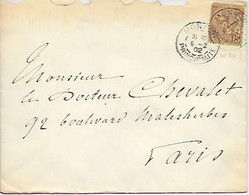 Monsieur
le Docteur Chevalet
92 boulevard Malesherbes
Paris